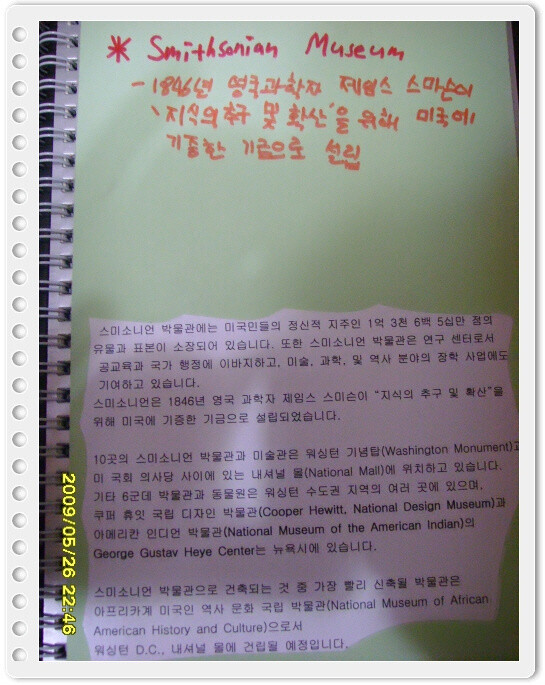 * Smithsonian Museum
- 1846년 영국과학자 제임스 스미손이
'지식의 추구 및 확산'을 위해 미국에
기증한 기금으로 설립
스미소니언 박물관에는 미국민들의 정신적 지주인 1억 3천 6백 5십만 점의
유물과 표본이 소장되어 있습니다. 또한 스미소니언 박물관은 연구 센터로서
공교육과 국가 행정에 이바지하고, 미술, 과학, 및 역사 분야의 장학 사업에도
기여하고 있습니다.
스미소니언은 1846년 영국 과학자 제임스 스미손이 "지식의 추구 및 확산"을
위해 미국에 기증한 기금으로 설립되었습니다.
10곳의 스미소니언 박물관과 미술관은 워싱턴 기념탑(Washington Monument)과
미 국회 의사당 사이에 있는 내셔널 몰(National Mall)에 위치하고 있습니다.
기타 6군데 박물관과 동물원은 워싱턴 수도권 지역의 여러 곳에 있으며,
쿠퍼 휴잇 국립 디자인 박물관(Cooper Hewitt, National Design Museum)과
아메리칸 인디언 박물관(National Museum of the American Indian)의
George Gustav Heye Center는 뉴욕시에 있습니다.
스미소니언 박물관으로 건축되는 것 중 가장 빨리 신축될 박물관은
아프리카계 미국인 역사 문화 국립 박물관(National Museum of African
American History and Culture)으로서
워싱턴 D.C., 내셔널 몰에 건립될 예정입니다.
2009/05/26 22:46